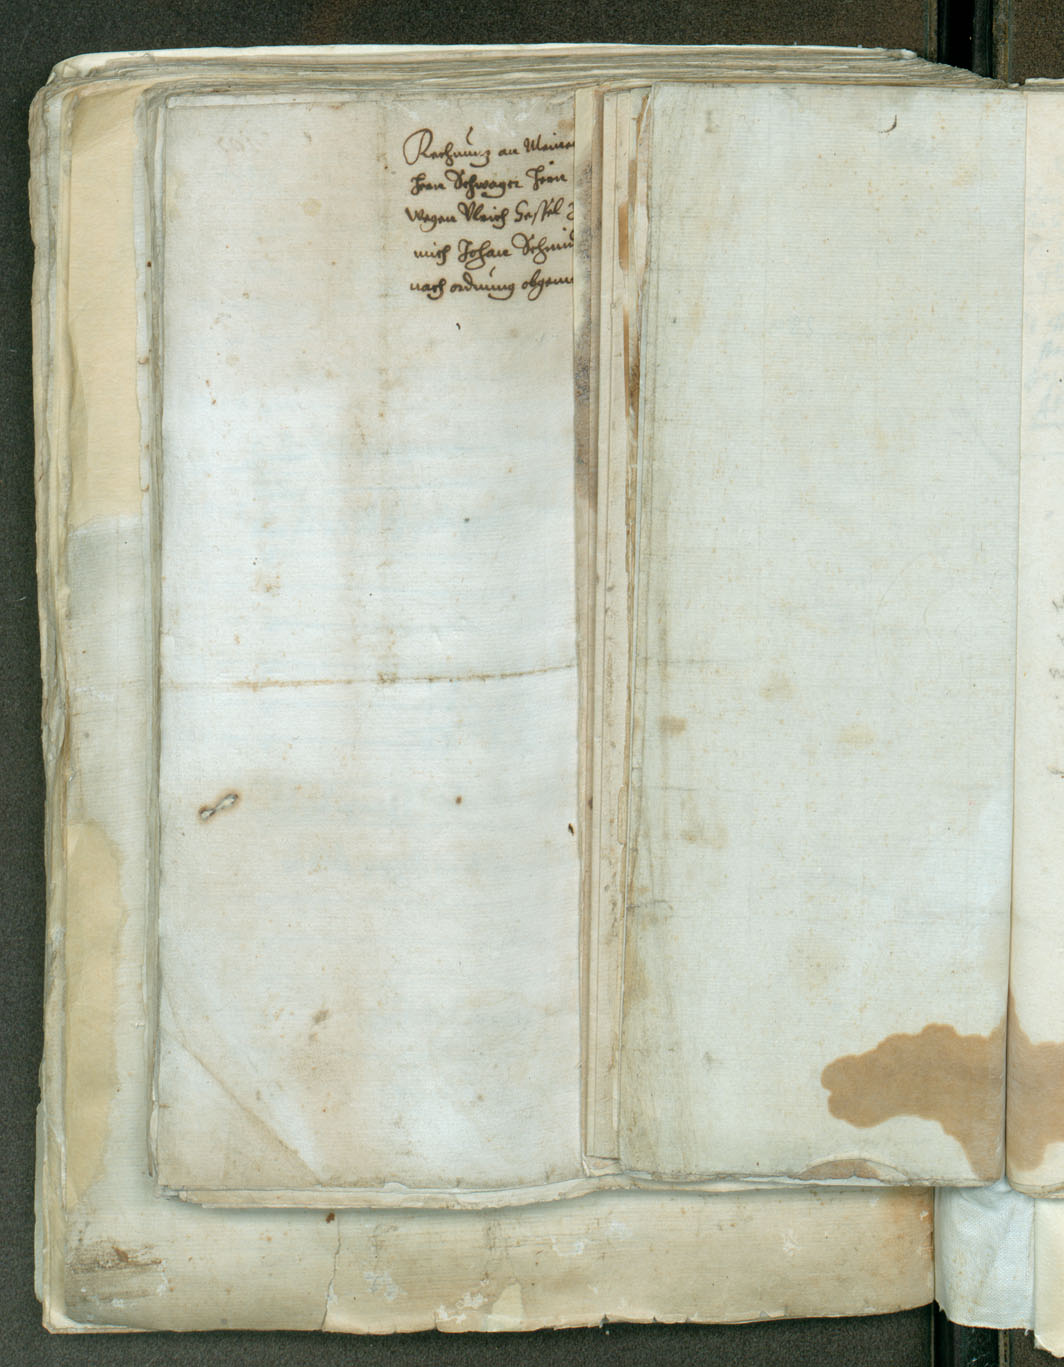 Rechnung an Meine
Hern Schwager Hern
Wegen Vlrich Hessel
mich Johan Schmi
nach ordnung obgem